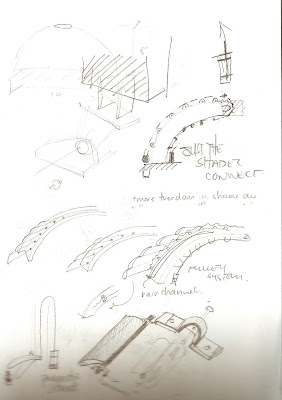 5
10
THE
SHADER
CONNECT
+more freedom in shade
PULLEY
SYSTEM.
rain channel.